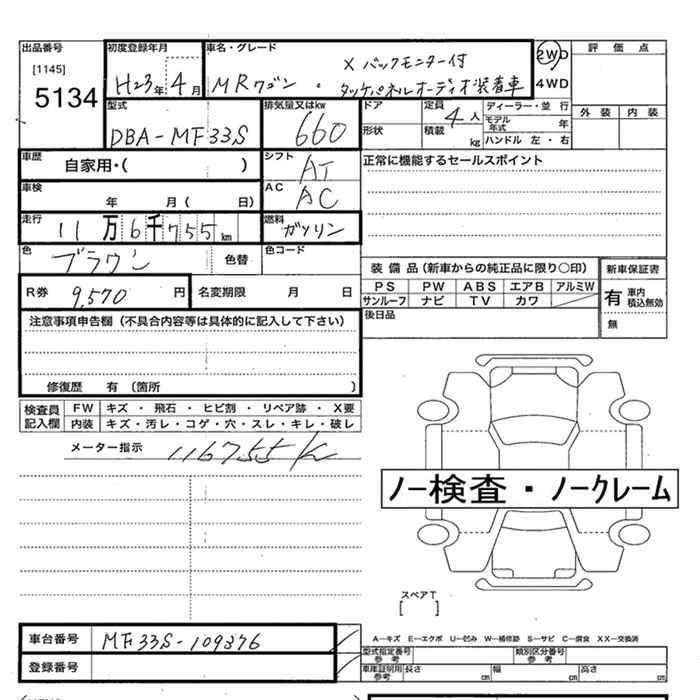 出品番号
[1145]
5134
初度登録年月
H23年 4月
車名・グレード
X バックモニター付
MRワゴン・タッチパネルオーディオ装着車
2WD
4WD
評価点
外装 内装
型式
DBA-MF33S
排気量又はkw
660
ドア
形状
定員 4人
積載 kg
ディーラー・並行
モデル年式 年
ハンドル 左・右
車歴
自家用・( )
シフト
AT
正常に機能するセールスポイント
車検
年 月( 日)
AC
AC
走行
11万6千755km
燃料
ガソリン
色
ブラウン
色替
色コード
装備品(新車からの純正品に限り○印)
PS PW ABS エアB アルミW
サンルーフ ナビ TV カワ
新車保証書
有 車内積込無効
無
R券 9,570 円
名変期限 月 日
後日品
注意事項申告欄(不具合内容等は具体的に記入して下さい)
修復歴 有(箇所 )
検査員記入欄
FW キズ・飛石・ヒビ割・リペア跡・X要
内装 キズ・汚レ・コゲ・穴・スレ・キレ・破レ
メーター指示 116755K
ノー検査・ノークレーム
スペアT
[ ]
車台番号 MF33S-109376
登録番号
A―キズ E―エクボ U―凹み W―補修跡 S―サビ C―腐食 XX―交換済
型式指定番号 参考
類別区分番号 参考
車庫証明用 参考
長さ cm
幅 cm
高さ cm